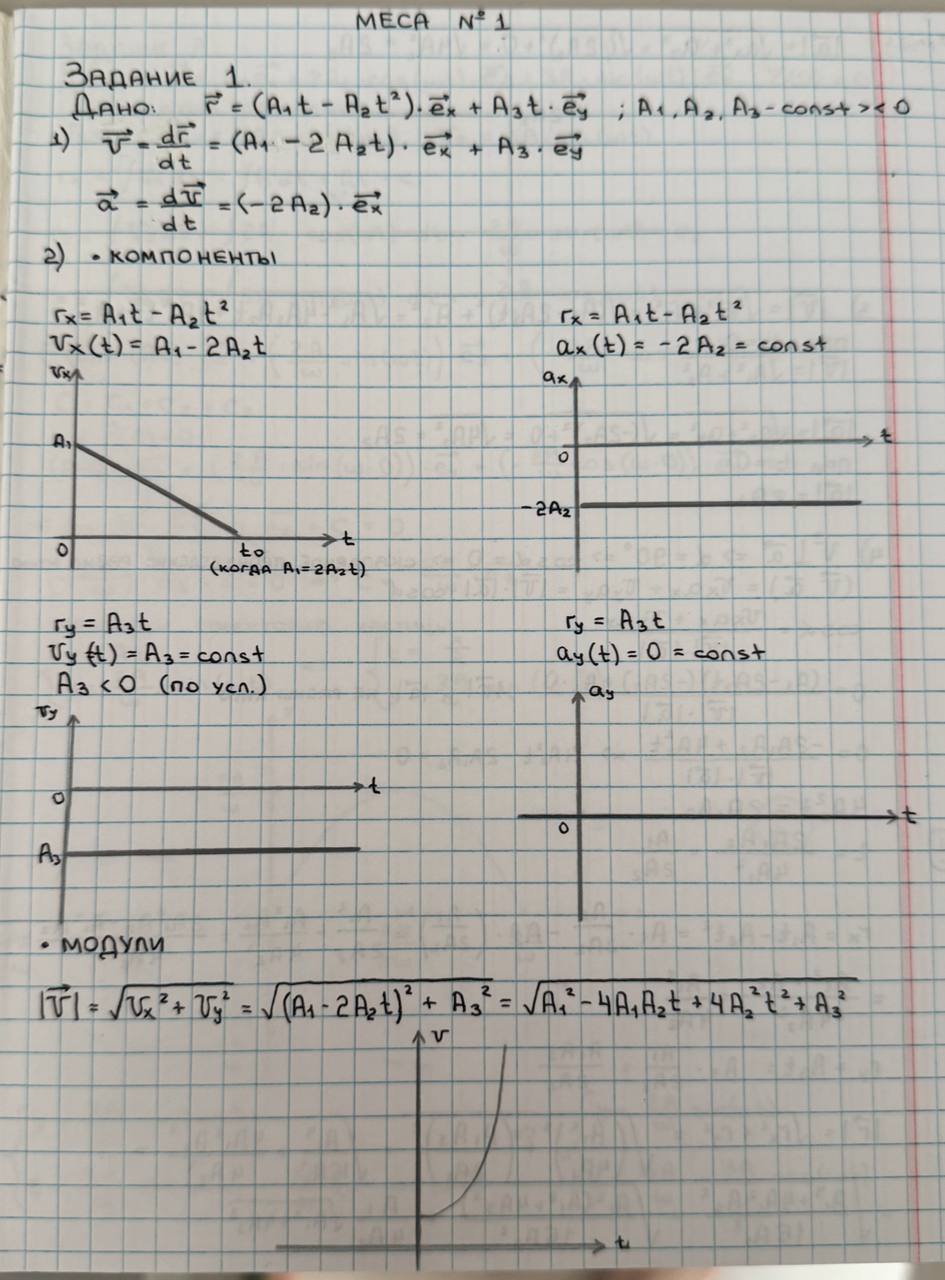 МЕСА № 1
ЗАДАНИЕ 1.
ДАНО: r⃗ = (A₁t − A₂t²)·e⃗x + A₃t·e⃗y ; A₁, A₂, A₃ - const >< 0
1) v⃗ = dr⃗/dt = (A₁ − 2A₂t)·e⃗x + A₃·e⃗y
a⃗ = dv⃗/dt = (−2A₂)·e⃗x
2) • КОМПОНЕНТЫ
rx = A₁t − A₂t²
vx(t) = A₁ − 2A₂t
vx
A₁
0
t₀
t
(когда A₁=2A₂t)
rx = A₁t − A₂t²
ax(t) = −2A₂ = const
ax
t
0
−2A₂
ry = A₃t
vy(t) = A₃ = const
A₃ < 0 (по усл.)
vy
0
t
A₃
ry = A₃t
ay(t) = 0 = const
ay
0
t
• МОДУЛИ
|v⃗| = √(vx² + vy²) = √((A₁ − 2A₂t)² + A₃²) = √(A₁² − 4A₁A₂t + 4A₂²t² + A₃²)
v
t